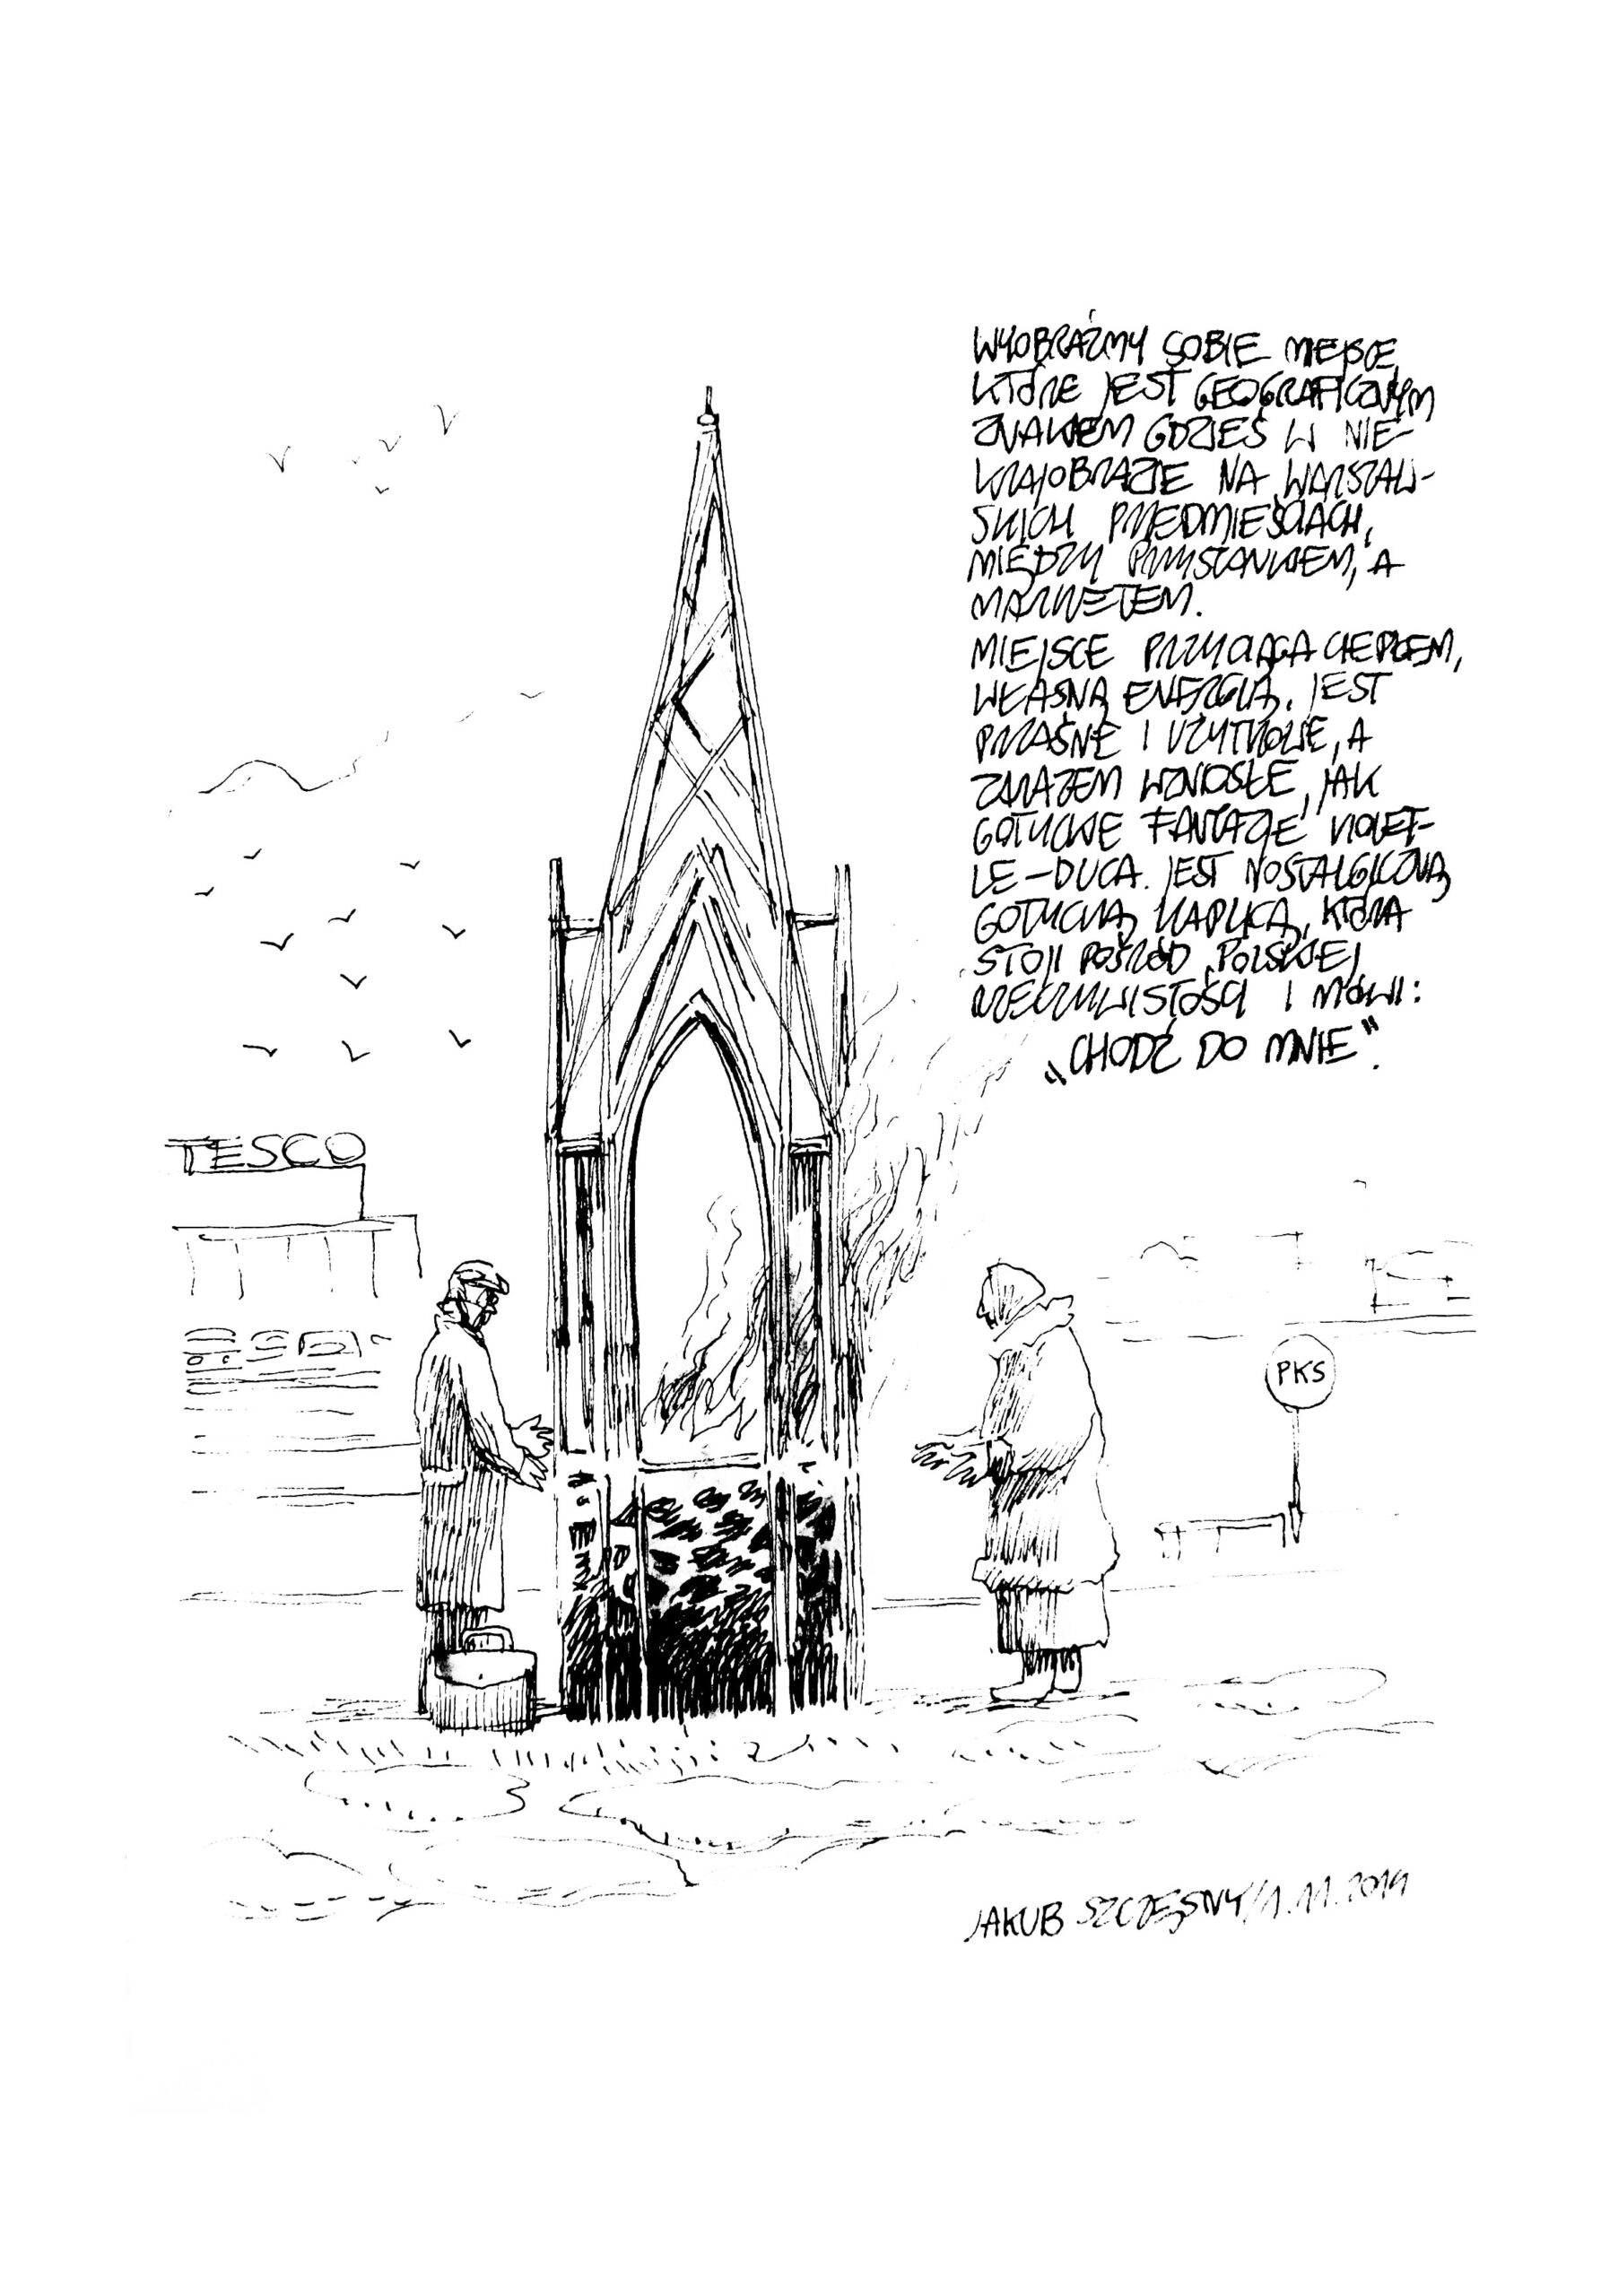 WYOBRAŹMY SOBIE MIEJSCE,
KTÓRE JEST GEOGRAFICZNYM
ZNAKIEM GDZIEŚ W NIE-
KRAJOBRAZIE NA WARSZAW-
SKICH PRZEDMIEŚCIACH,
MIĘDZY PRZYSTANKIEM, A
MARKETEM.
MIEJSCE PRZYCIĄGA CIEPŁEM,
WŁASNĄ ENERGIĄ. JEST
PRZAŚNE I UŻYTKOWE, A
ZARAZEM WZNIOSŁE, JAK
GOTYCKIE FANTAZJE VIOLET-
LE-DUCA. JEST NOSTALGICZNĄ
GOTYCKĄ KAPLICĄ, KTÓRA
STOI POŚRÓD POLSKIEJ
RZECZYWISTOŚCI I MÓWI:
„CHODŹ DO MNIE".
TESCO
PKS
JAKUB SZCZĘSNY/1.11.2019